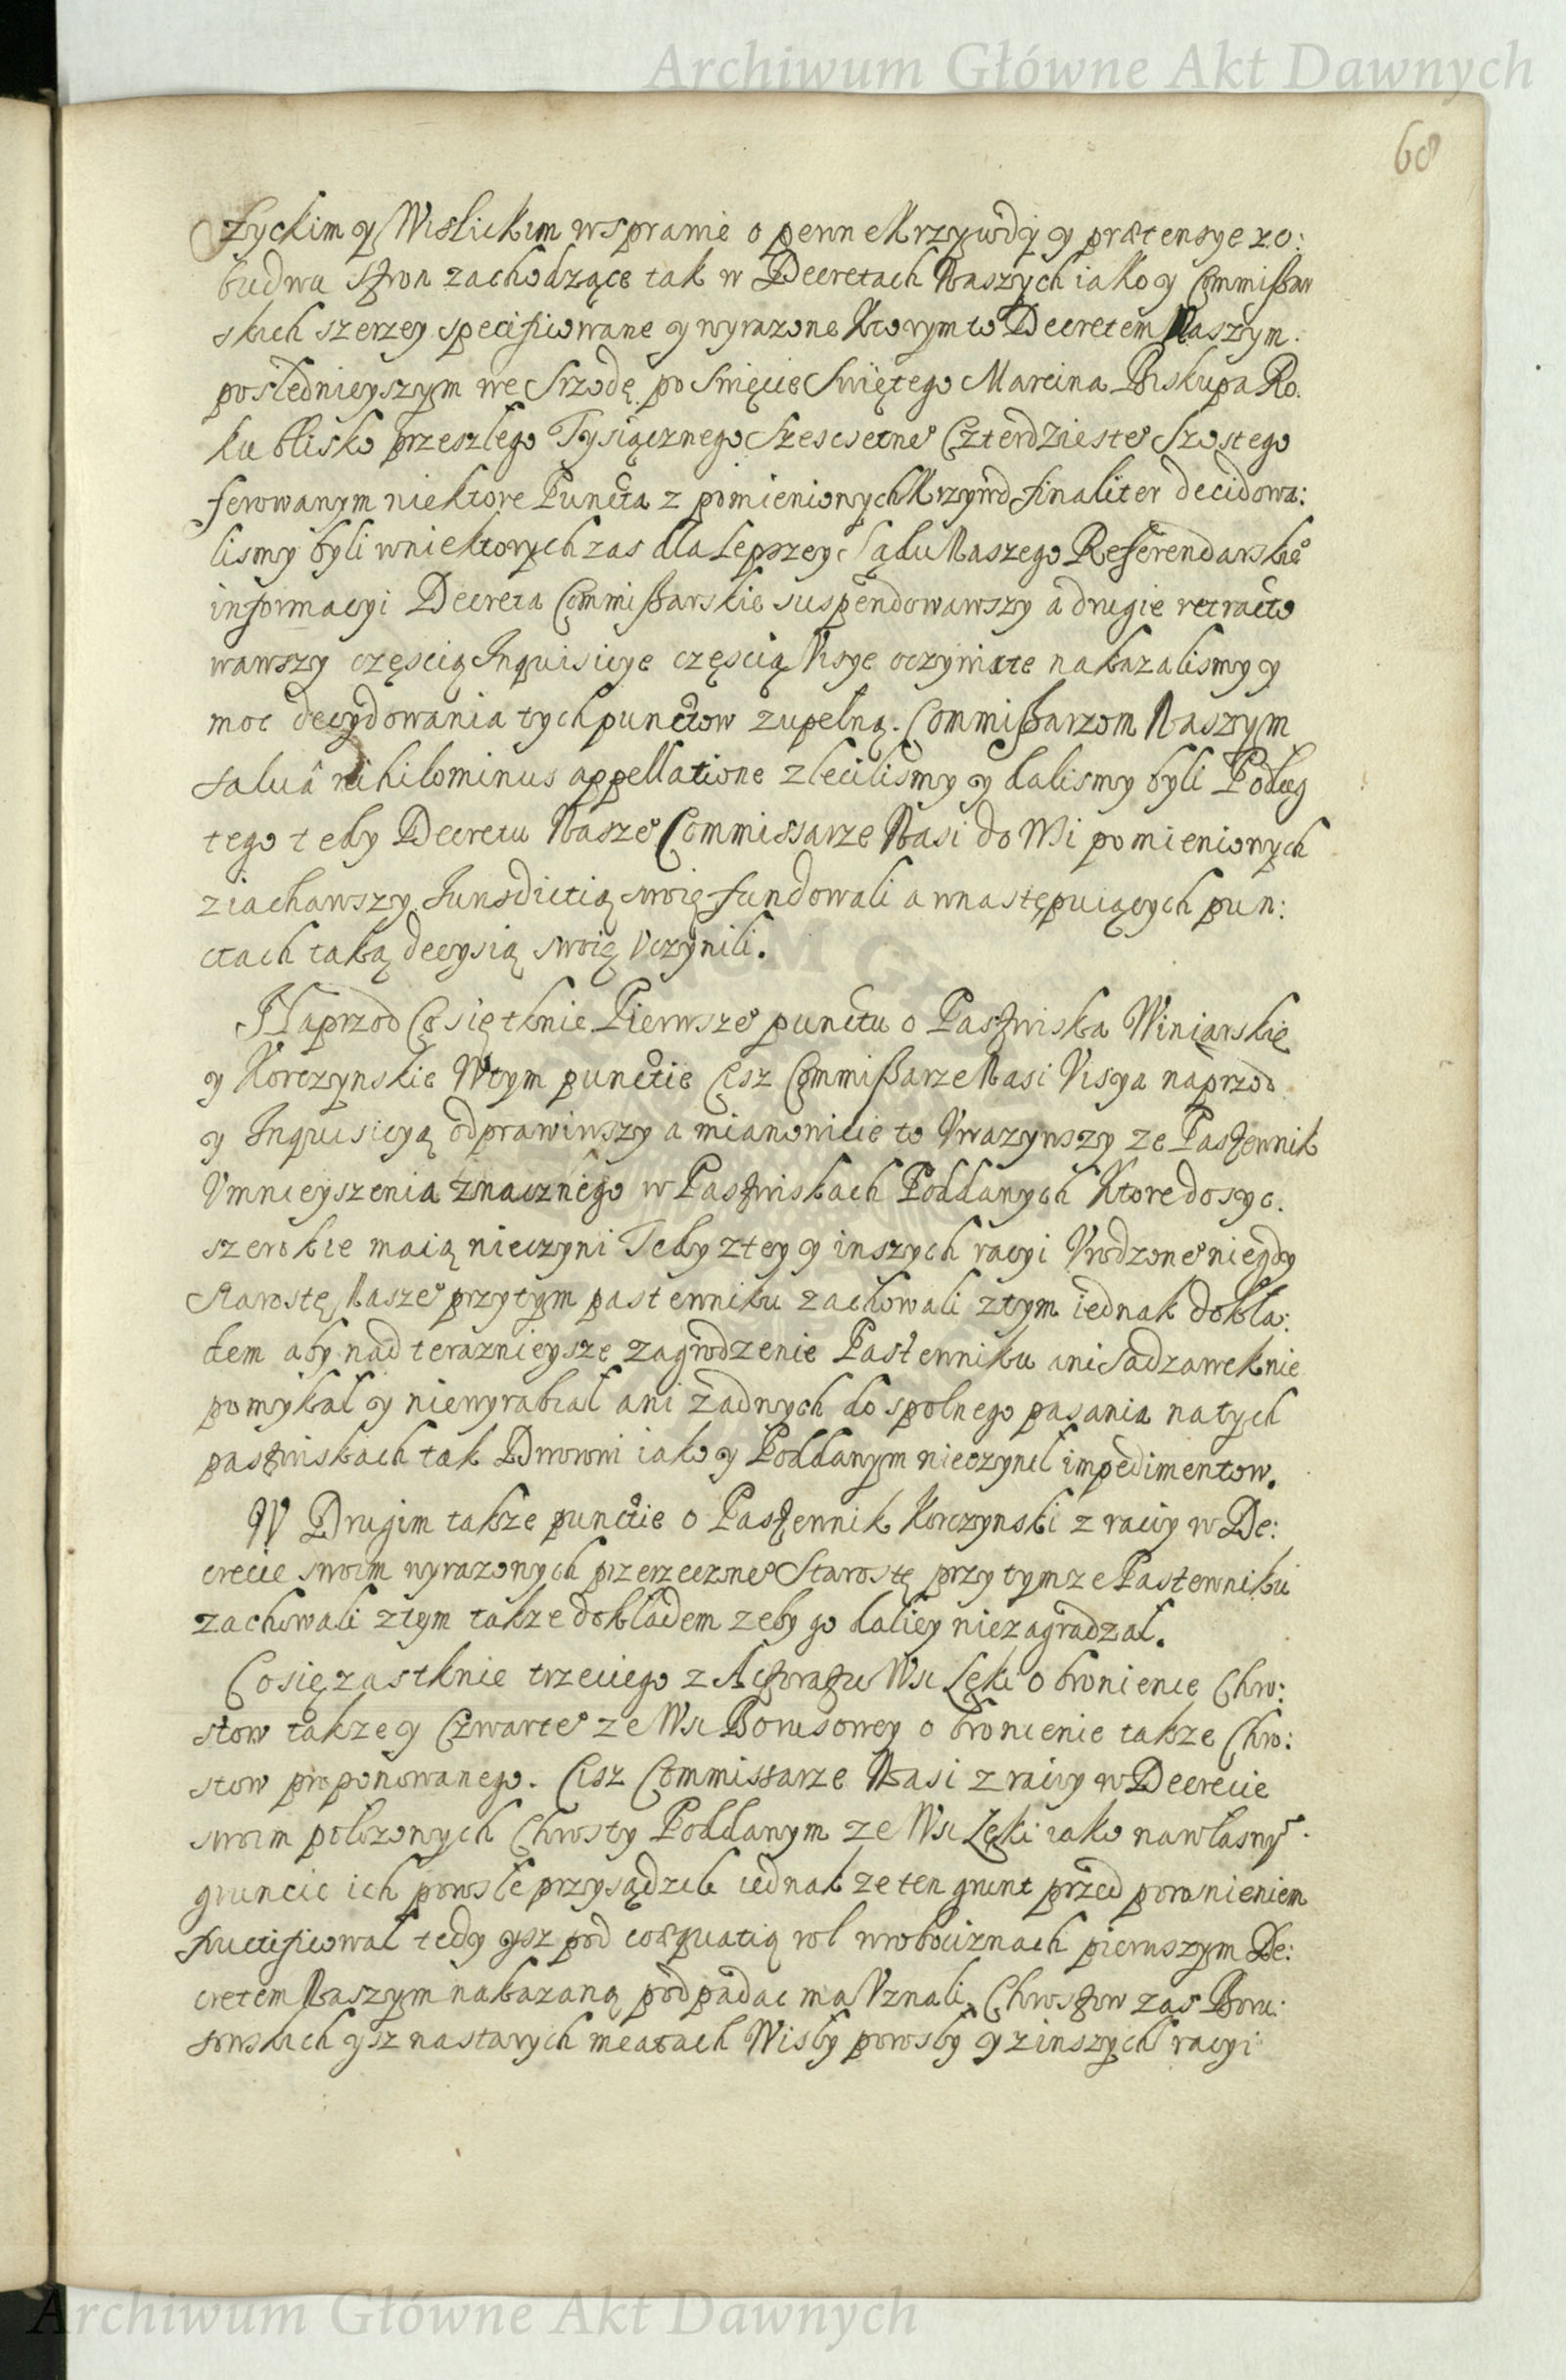 Archiwum Główne Akt Dawnych
68
życkim y Wislickim w sprawie o pewne Krzywdy y prætensye zo:
budwu stron zachodzące tak w Decretach Naszych iako y Commißar
skich szerzey specificowane y wyrazone Ktorym to Decretem Naszym.
poslednieyszym we Srzodę po Swięcie Swiętego Marcina Biskupa Ro.
ku blisko przeszlego Tysiącznego Szescsetne° Czterdzieste° Szostego
ferowanym niektore Puncta z pomienionych Krzywd finaliter decidowa:
lismy byli w niektorych zas dla Lepszey Sądu Naszego Referendarskie°
informacyi Decreta Commißarskie suspendowawszy a drugie retracto
wawszy częscią Inquisicye częscią Visye oczywiste nakazalismy y
moc decydowania tych punctow zupełną. Commißarzom Naszym
salua nihilominus appellatione zlecilismy y dalismy byli Podług
tego tedy Decretu Nasze° Commissarze Nasi do Wsi pomienionych
ziachawszy Iurisdictią swoię fundowali a w następuiących pun:
ctach taką decysią swoię Vczynili.
Naprzod Co się tknie Pierwsze° punctu o Pastwiska Winiarskie
y Korczynskie W tym punctie Cisz Commißarze Nasi Visya naprzod
y Inquisicyą odprawiwszy a mianowicie to Vwazywszy ze Pastewnik
Vmnieyszenia znacznego w Pastwiskach Poddanych Ktore dosyc.
szerokie maią nieczyni Tedy z tey y inszych racyi Vrodzone° niegdy
Starostę Nasze° przy tym pastewniku zachowali z tym iednak dokła:
dem aby nad teraznieysze zagrodzenie Pastewniku ani Sadzawek nie
pomykal y niewyrabial ani żadnych do spolnego pasania na tych
pastwiskach tak Dworowi iako y Poddanym nieczynil impedimentow.
W Drugim takze punctie o Pastewnik Korczynski z racyi w De:
crecie swoim wyrazonych przerzeczone° Starostę przy tymze Pastewniku
zachowali z tym takze dokladem zeby go daliey niezagradzal.
Co się zas tknie trzeciego z Actoratu Wsi Lęki o bronienie Chro:
stow takze y Czwarte° ze Wsi Borusowey o bronienie takze Chro:
stow proponowanego. Cisz Commissarze Nasi z racyi w Decrecie
swoim polozonych Chrosty Poddanym ze Wsi Lęki iako na wlasny~
gruncie ich porosle przysądzili iednak ze ten grunt przed powonieniem
fructificowal tedy ysz pod coæquatią rol w robociznach pierwszym De:
cretem Naszym nakazaną podpadac ma Vznali. Chrostow zas Boru:
sowskich ysz na starych meatach Wisly porosly y z inszych racyi
Archiwum Główne Akt Dawnych